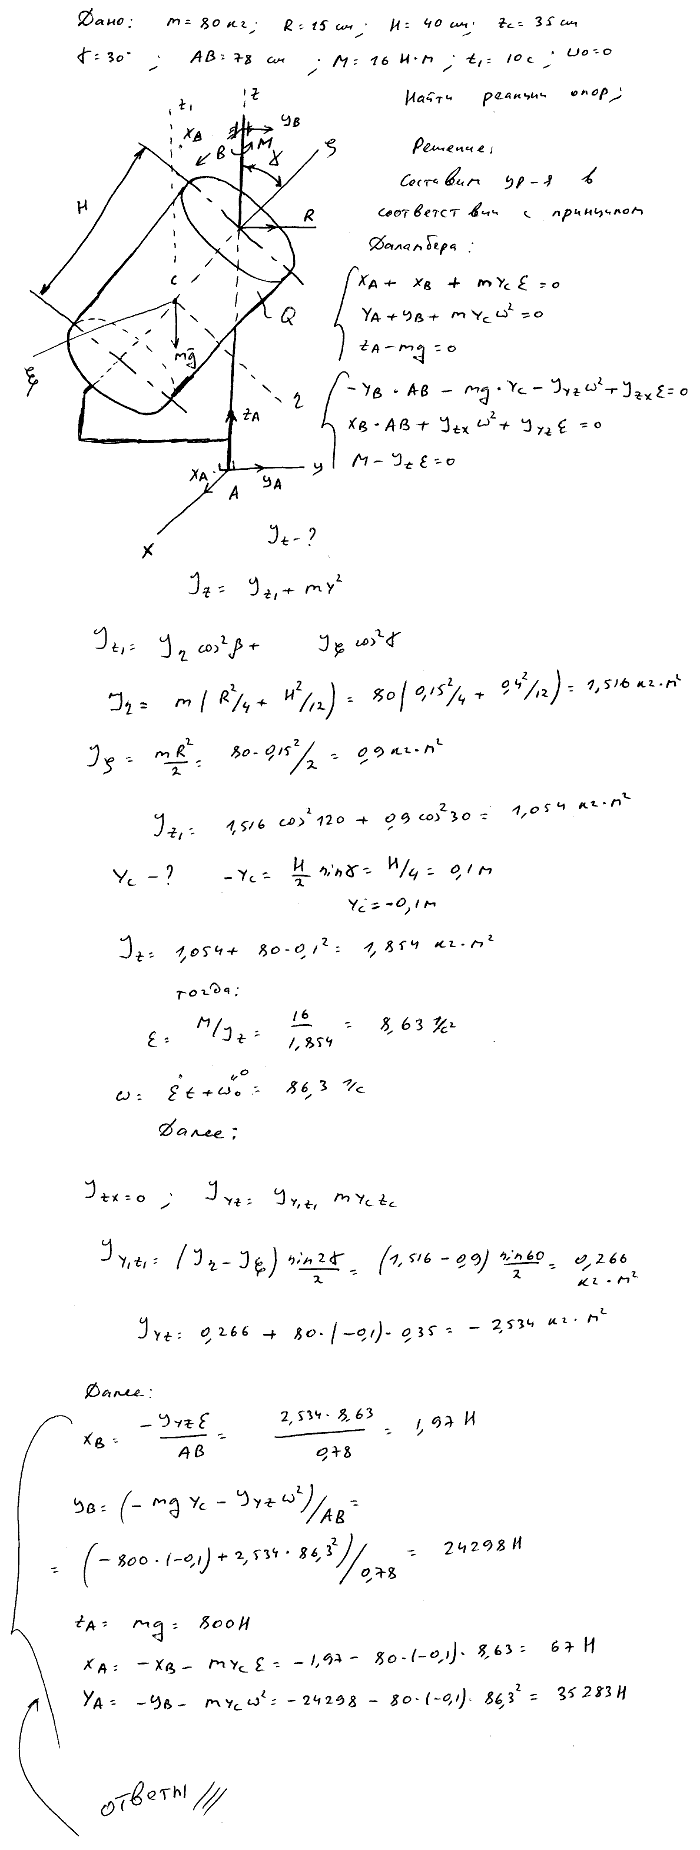 Дано: m = 80 кг; R = 15 см; H = 40 см; zc = 35 см
γ = 30°; AB = 78 см; M = 16 Н·м; t₁ = 10 с; ω₀ = 0
Найти реакции опор;
Решение:
Составим ур-я в
соответствии с принципом
Даламбера:
XA + XB + m Yc ε = 0
YA + YB + m Yc ω² = 0
ZA - mg = 0
-YB · AB - mg · Yc - Jyz ω² + Jzx ε = 0
XB · AB + Jzx ω² + Jyz ε = 0
M - Jz ε = 0
z₁
z
XA
yB
B
M
γ
ζ
H
R
C
Q
mg
ξ
η
zA
XA
A
yA
y
X
Jz - ?
Jz = Jz₁ + my²
Jz₁ = Jη cos²β + Jξ cos²γ
Jη = m(R²/4 + H²/12) = 80(0,15²/4 + 0,4²/12) = 1,516 кг·м²
Jξ = mR²/2 = 80·0,15²/2 = 0,9 кг·м²
Jz₁ = 1,516 cos²120 + 0,9 cos²30 = 1,054 кг·м²
Yc - ? -Yc = H/2 sinγ = H/4 = 0,1 м
Yc = -0,1 м
Jz = 1,054 + 80·0,1² = 1,854 кг·м²
тогда:
ε = M/Jz = 16/1,854 = 8,63 1/с²
ω = εt + ω₀ = 86,3 1/с
Далее:
Jzx = 0; Jyz = Jy₁z₁ m Yc zc
Jy₁z₁ = (Jη - Jξ) sin2γ/2 = (1,516 - 0,9) sin60/2 = 0,266 кг·м²
Jyz = 0,266 + 80·(-0,1)·0,35 = -2,534 кг·м²
Далее:
XB = -Jyz ε/AB = 2,534·8,63/0,78 = 1,97 Н
YB = (-mg Yc - Jyz ω²)/AB =
= (-800·(-0,1) + 2,534·86,3²)/0,78 = 24298 Н
ZA = mg = 800 Н
XA = -XB - m Yc ε = -1,97 - 80·(-0,1)·8,63 = 67 Н
YA = -YB - m Yc ω² = -24298 - 80·(-0,1)·86,3² = 35283 Н
ответы ///